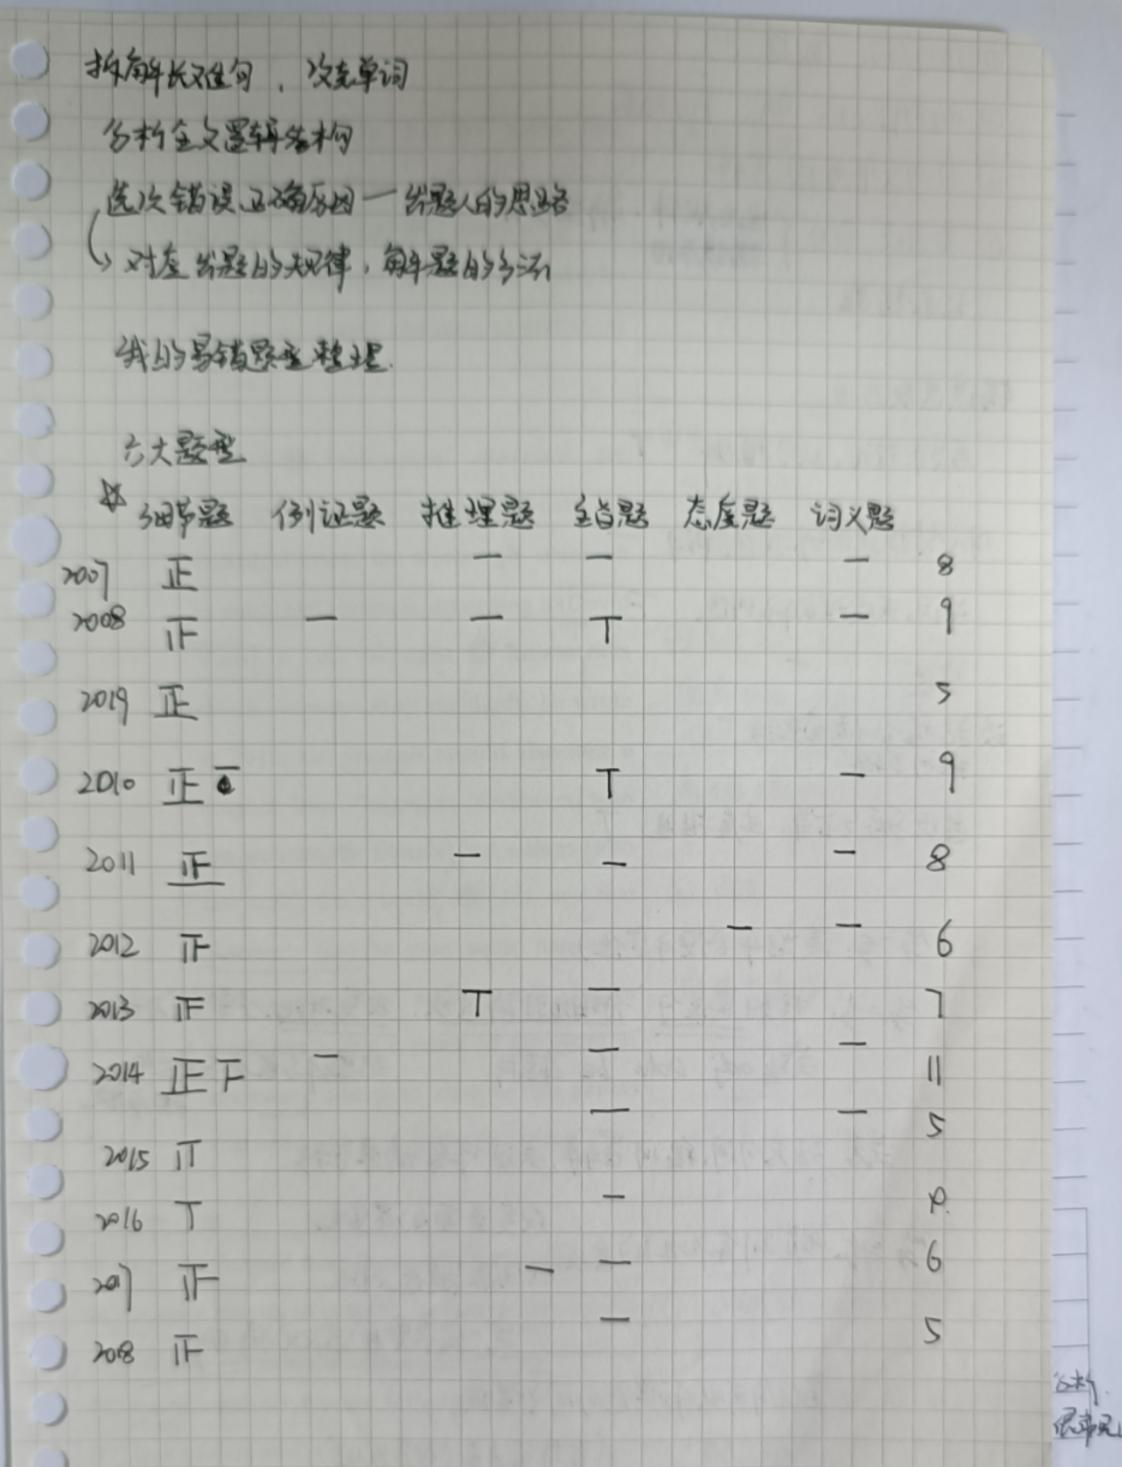 拆解长难句，攻克单词
分析全文逻辑结构
选项错误正确原因一出题人的思路
对应出题的规律，解题的方法
我的易错题型整理.
六大题型
☆细节题 例证题 推理题 主旨题 态度题 词义题
2007 正 一 一 一 8
2008 正 一 一 T 一 9
2019 正 5
2010 正 T 一 9
2011 正 一 一 一 8
2012 正 一 一 6
2013 正 T 一 7
2014 正下 一 一 一 11
2015 一 一 5
2016 T 一
2017 正 一 一 6
2018 正 一 5
分析